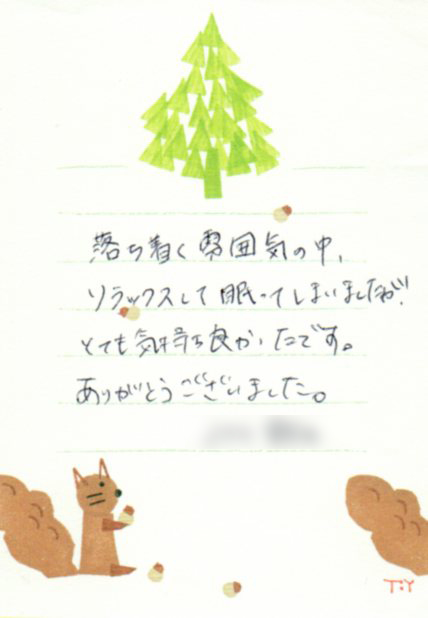 落ち着く雰囲気の中、
リラックスして眠ってしまいましたが!
とても気持ち良かったです。
ありがとうございました。
T.Y